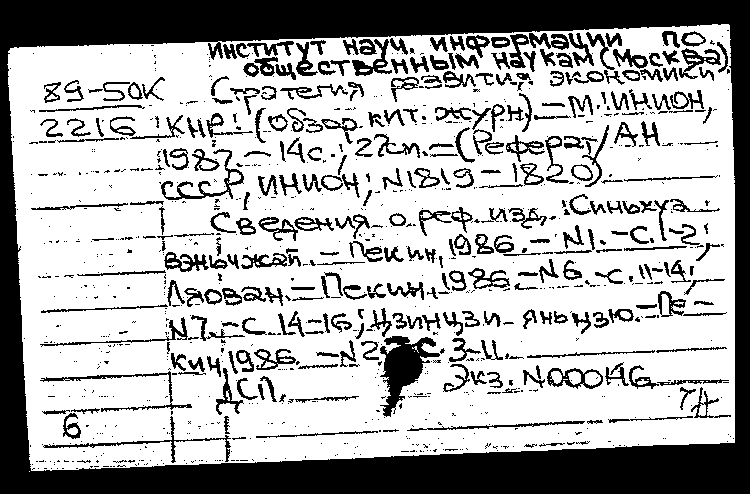 институт науч. информации по
общественным наукам (Москва)
89-50К Стратегия развития экономики
2216 КНР: (Обзор кит. журн.). – М.: ИНИОН,
1987. – 14с.; 27см. – (Реферат/АН
СССР, ИНИОН; N1819 – 1820).
Сведения о реф. изд.: Синьхуа
вэньчжай. – Пекин, 1986. – N1. – С. 1-2;
Ляован. – Пекин, 1986. – N6. – С. 11-14;
N7. – С. 14-16; Цзинцзи яньцзю. – Пе –
кин, 1986. – N2. – С. 3-11.
ДСП. Экз. N000146
6